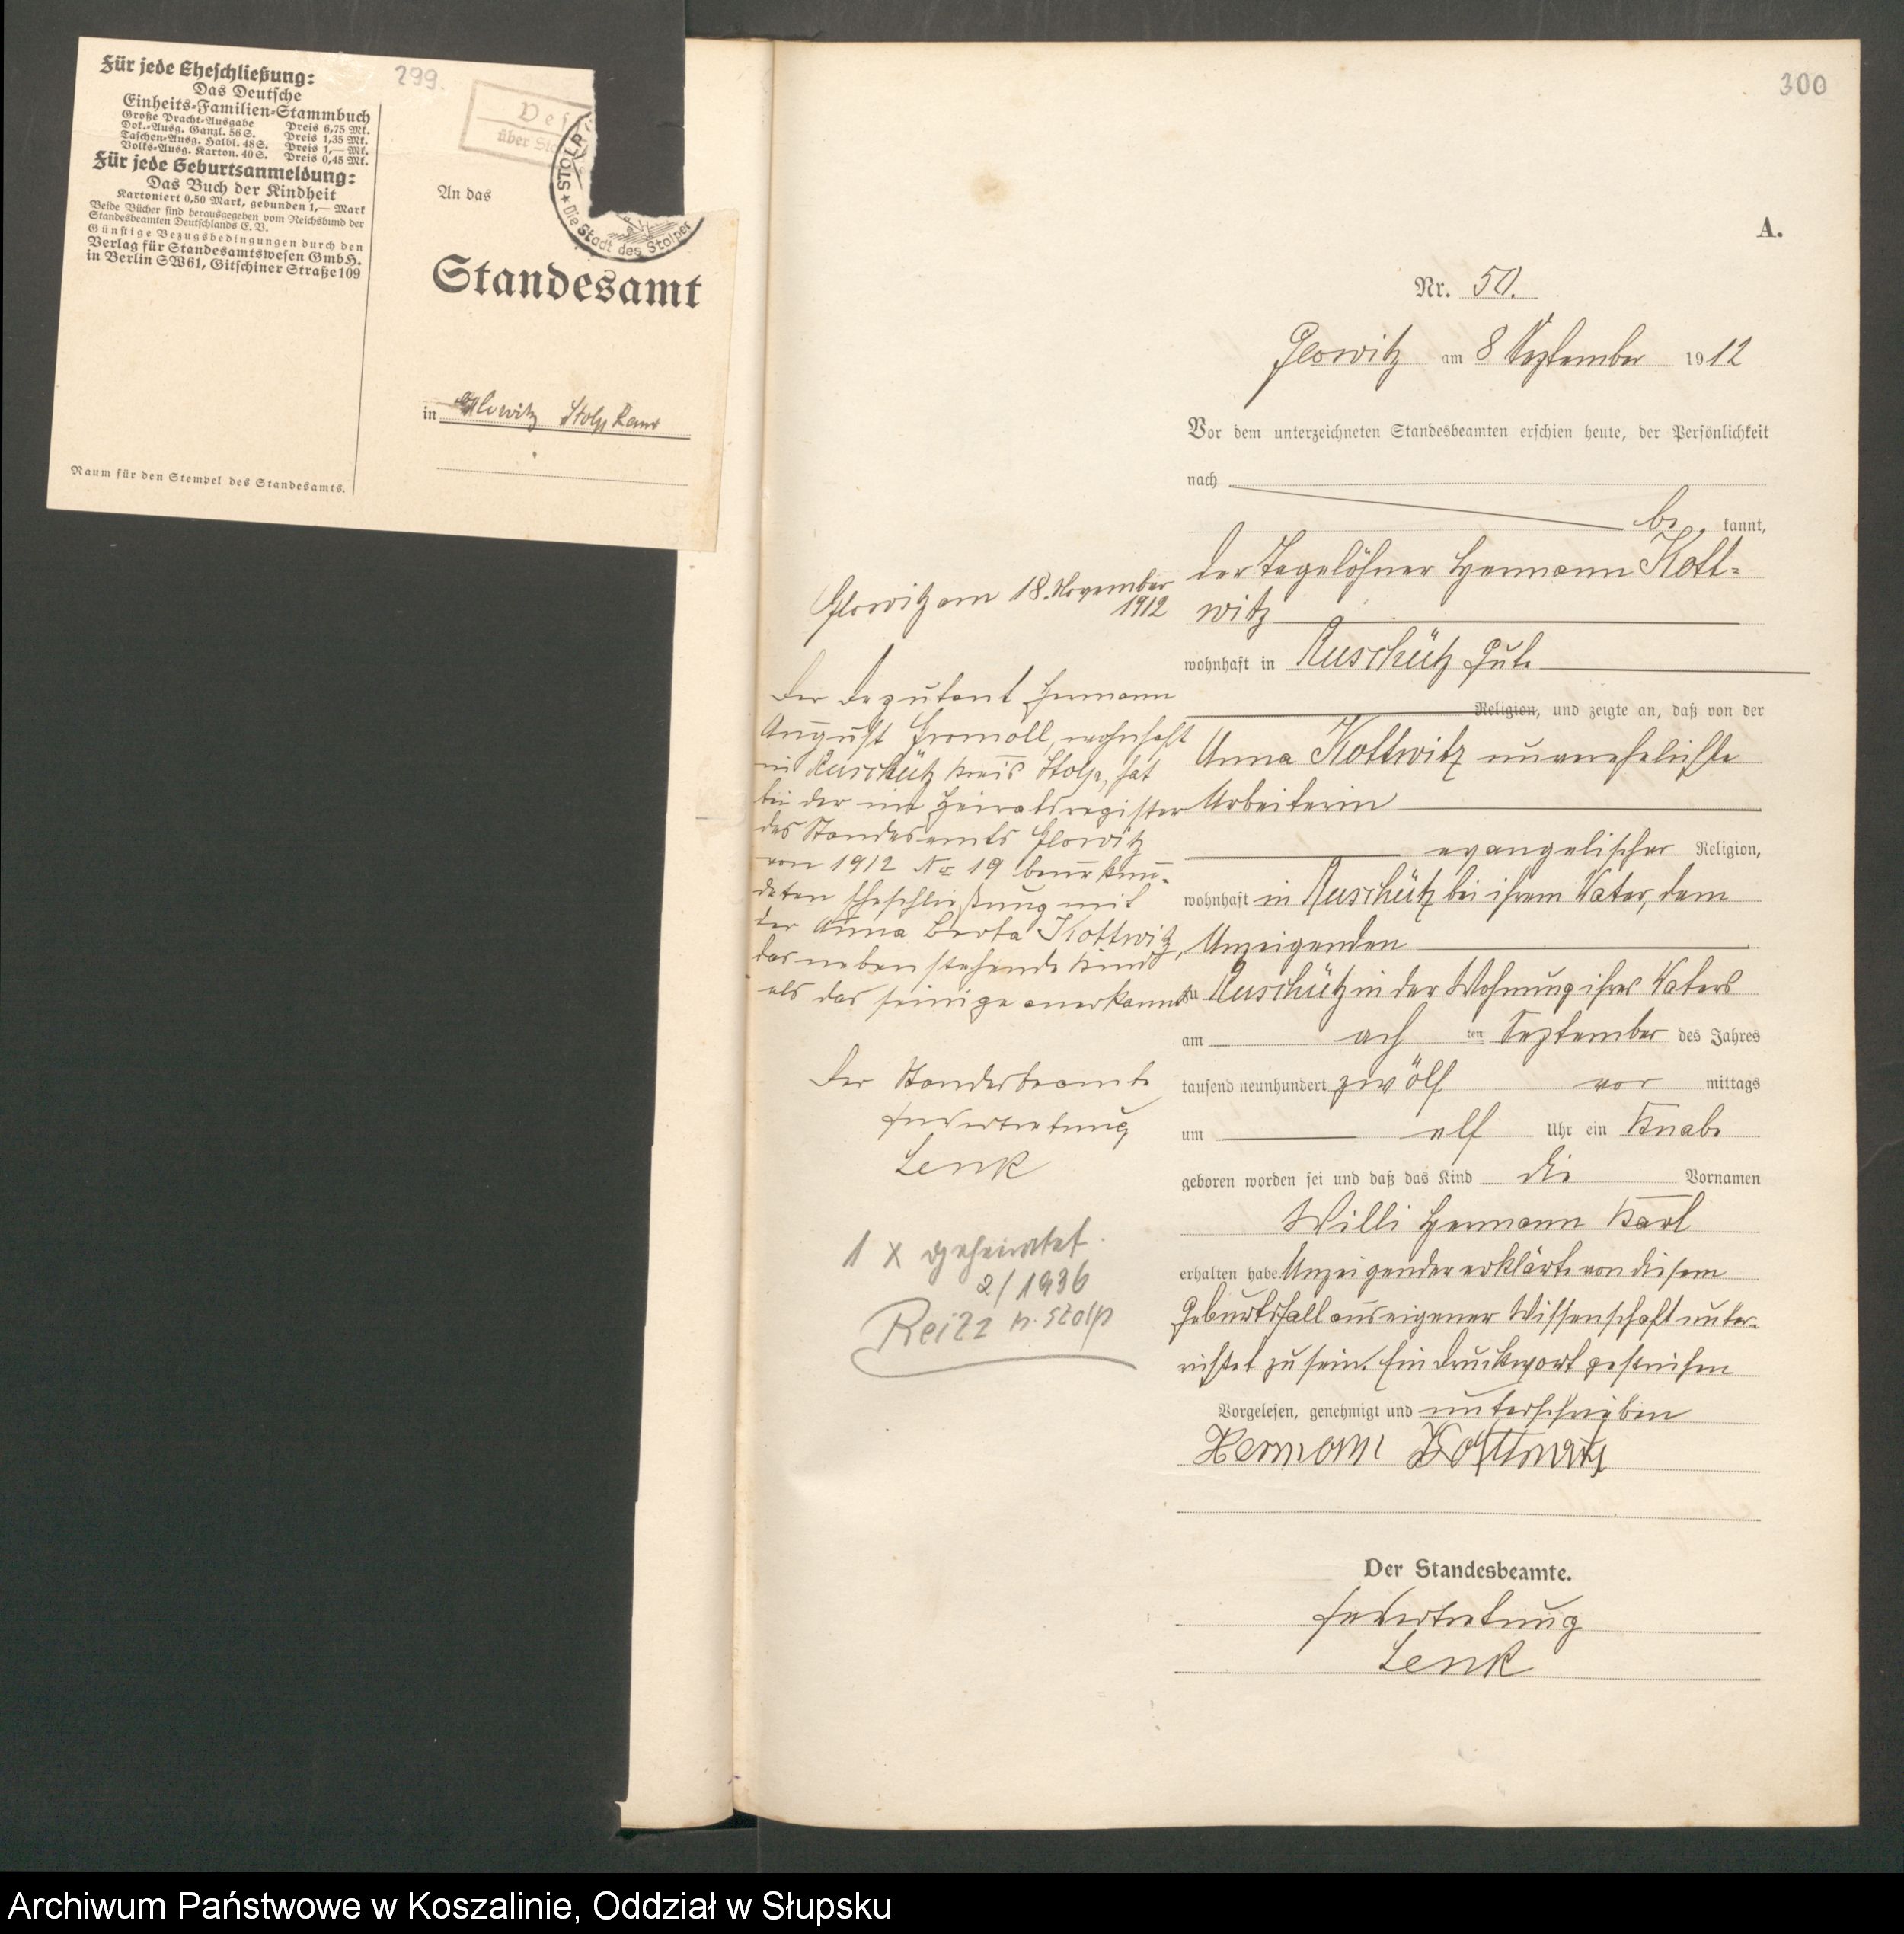 Für jede Eheschließung:
Das Deutsche
Einheits-Familien-Stammbuch
Große Pracht-Ausgabe Preis 6,75 Mk.
Dok.-Ausg. Ganzl. 56 S. Preis 1,35 Mk.
Taschen-Ausg. Halbl. 48 S. Preis 1,— Mk.
Volks-Ausg. Karton. 40 S. Preis 0,45 Mk.
Für jede Geburtsanmeldung:
Das Buch der Kindheit
Kartoniert 0,50 Mark, gebunden 1,— Mark
Beide Bücher sind herausgegeben vom Reichsbund der
Standesbeamten Deutschlands E. V.
Günstige Bezugsbedingungen durch den
Verlag für Standesamtswesen GmbH.
in Berlin SW61, Gitschiner Straße 109
Raum für den Stempel des Standesamts.
299.
über
★ STOLP
Die Stadt des Stolper
An das
Standesamt
in Glowitz Stolp
300
A.
Nr. 50.
Glowitz am 8 September 1912
Vor dem unterzeichneten Standesbeamten erschien heute, der Persönlichkeit
nach
be kannt,
der Tagelöhner Hermann Kott-
witz
wohnhaft in Ruschütz Gut
Religion, und zeigte an, daß von der
Anna Kottwitz unverehelichte
Arbeiterin
evangelischer Religion,
wohnhaft in Ruschütz bei ihrem Vater, dem
Anzeigenden
zu Ruschütz in der Wohnung ihres Vaters
am ach ten September des Jahres
tausend neunhundert zwölf vor mittags
um elf Uhr ein Knabe
geboren worden sei und daß das Kind die Vornamen
Willi Hermann Karl
erhalten habe. Anzeigender erklärte von diesem
Geburtsfall aus eigener Wissenschaft unter-
richtet zu sein. Ein Druckwort gestrichen
Vorgelesen, genehmigt und unterschrieben
Hermann Kottwitz
Der Standesbeamte.
In Vertretung
Lenk
Glowitz am 18. November
1912
Der Deputant Hermann
August Gromoll, wohnhaft
in Ruschütz Kreis Stolp, hat
bei der im Heiratsregister
des Standesamts Glowitz
von 1912 Nr 19 beurkun-
deten Eheschließung mit
der Anna Berta Kottwitz,
das nebenstehende Kind
als das seinige anerkannt
Der Standesbeamte
In Vertretung
Lenk
1 x geheiratet.
2/1936
Reitz K. Stolp
Archiwum Państwowe w Koszalinie, Oddział w Słupsku